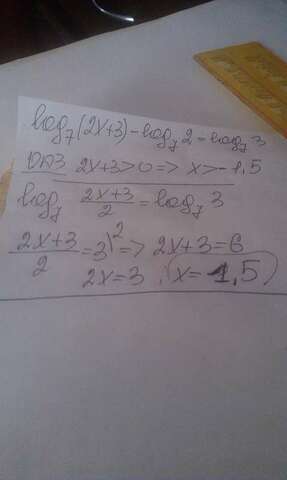 log₇(2x+3)-log₇2=log₇3
ОДЗ 2x+3>0=>x>-1,5
log₇ (2x+3)/2=log₇3
(2x+3)/2=3|² => 2x+3=6
2x=3, x=1,5